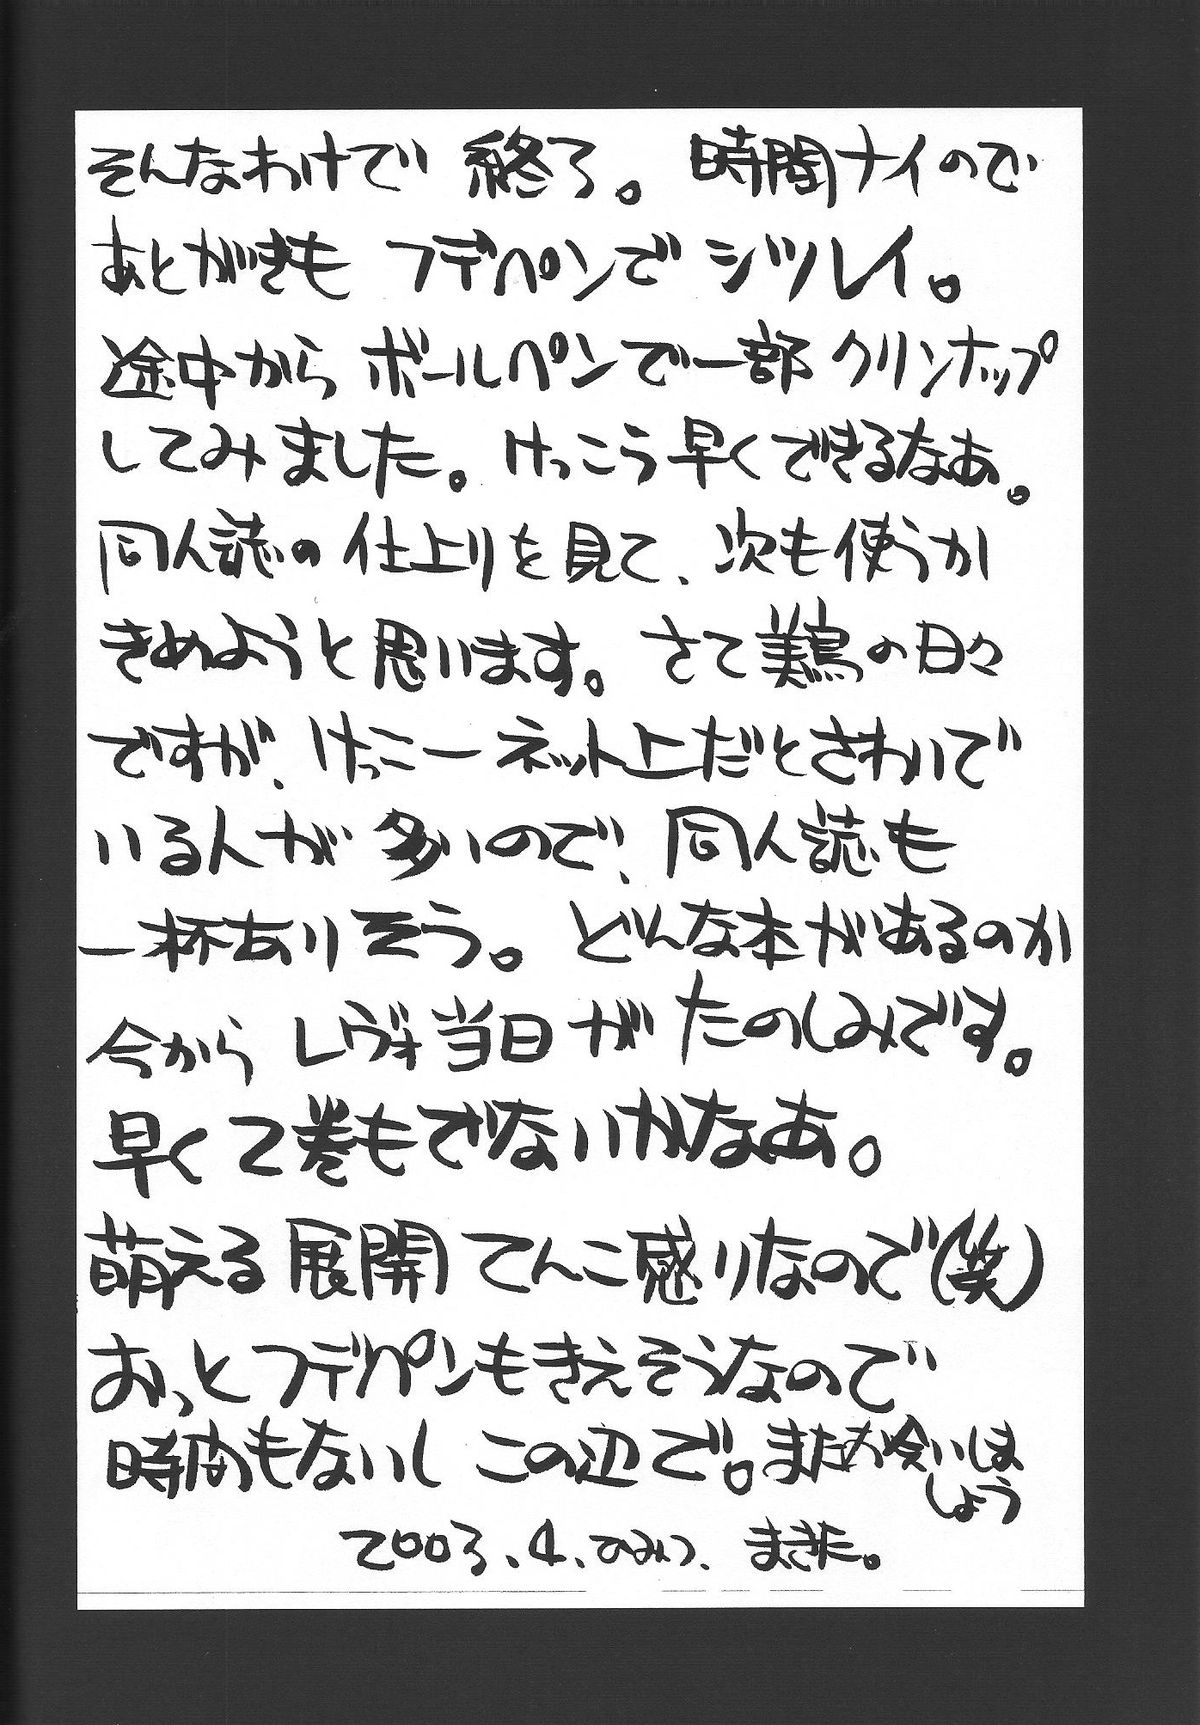 そんなわけで 終了。 時間ナイので
あとがきも フデペンで シツレイ。
途中から ボールペンで一部 クリンナップ
してみました。けっこう早くできるなあ。
同人誌の 仕上りを見て、次も使うか
きめようと思います。 さて 美鳥の日々
ですが、けっこーネット上だとさわいで
いる人が 多いので、同人誌も
一杯ありそう。 どんな本があるのか
今から レヴォ当日が たのしみです。
早く 2巻もでないかなあ。
萌える展開 てんこ盛りなので(笑)
おっとフデペンもきえそうなので
時間もないし この辺で。またお会いしま
しょう
2003.4.ひみつ. まきた。